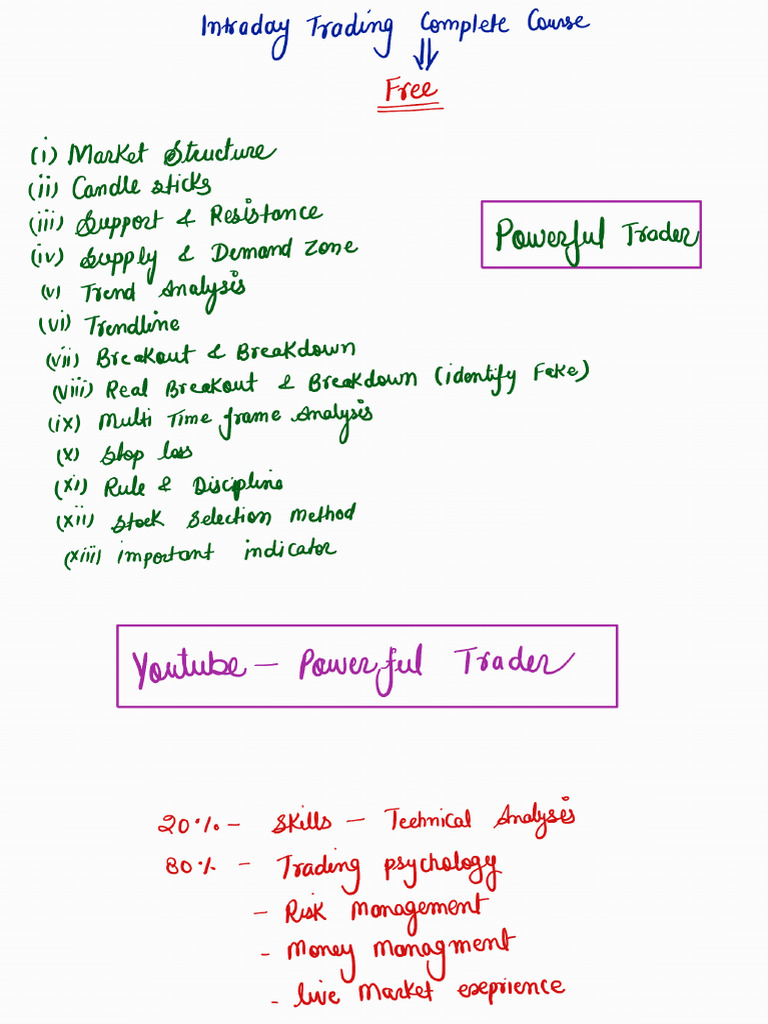 Intraday Trading Complete Course
⇓
Free
(i) Market Structure
(ii) Candle sticks
(iii) Support & Resistance
(iv) Supply & Demand Zone
(v) Trend Analysis
(vi) Trendline
(vii) Breakout & Breakdown
(viii) Real Breakout & Breakdown (identify Fake)
(ix) Multi Time frame Analysis
(x) Stop loss
(xi) Rule & Discipline
(xii) Stock Selection Method
(xiii) important indicator
Powerful Trader
Youtube - Powerful Trader
20% - Skills - Technical Analysis
80% - Trading psychology
- Risk Management
- Money Managment
- live Market exeprience